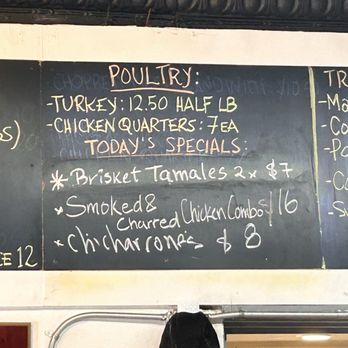 POULTRY:
-TURKEY: 12.50 HALF LB
-CHICKEN QUARTERS: 7 EA
TODAY'S SPECIALS:
* Brisket Tamales 2x $7
* Smoked &
Charred Chicken Combos 16
* Chicharrones $8
S)
12
TR
-Ma
-Co
-Po
-Co
-S